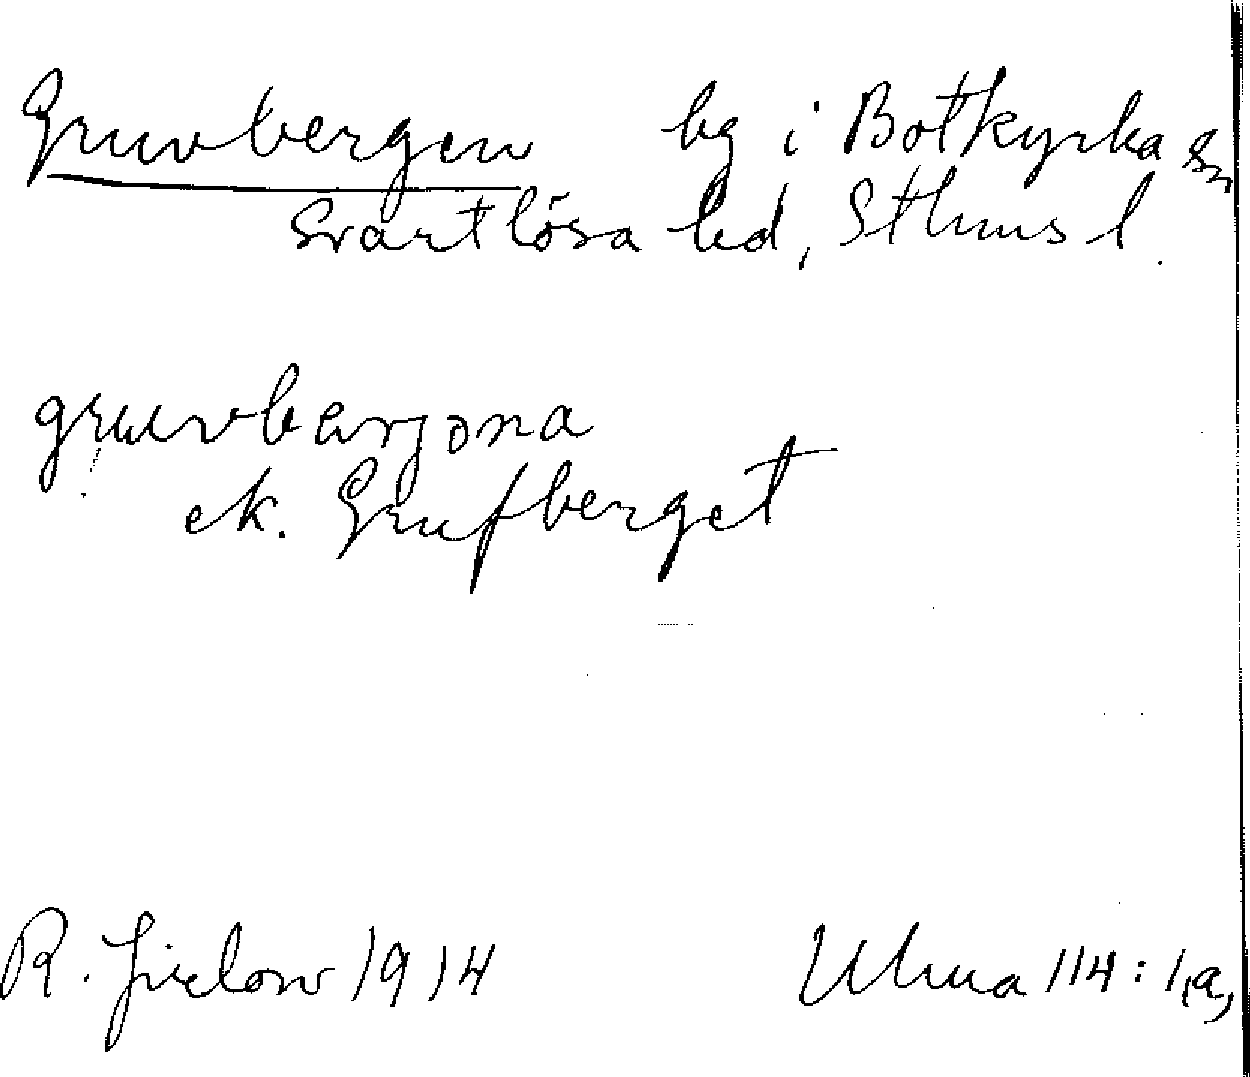 Gruvbergen bg i Botkyrka sn
Svartlösa hd, Sthms l.
gruvbærjəna
ek. Grufberget
R. 1914
Ulma 114:1,